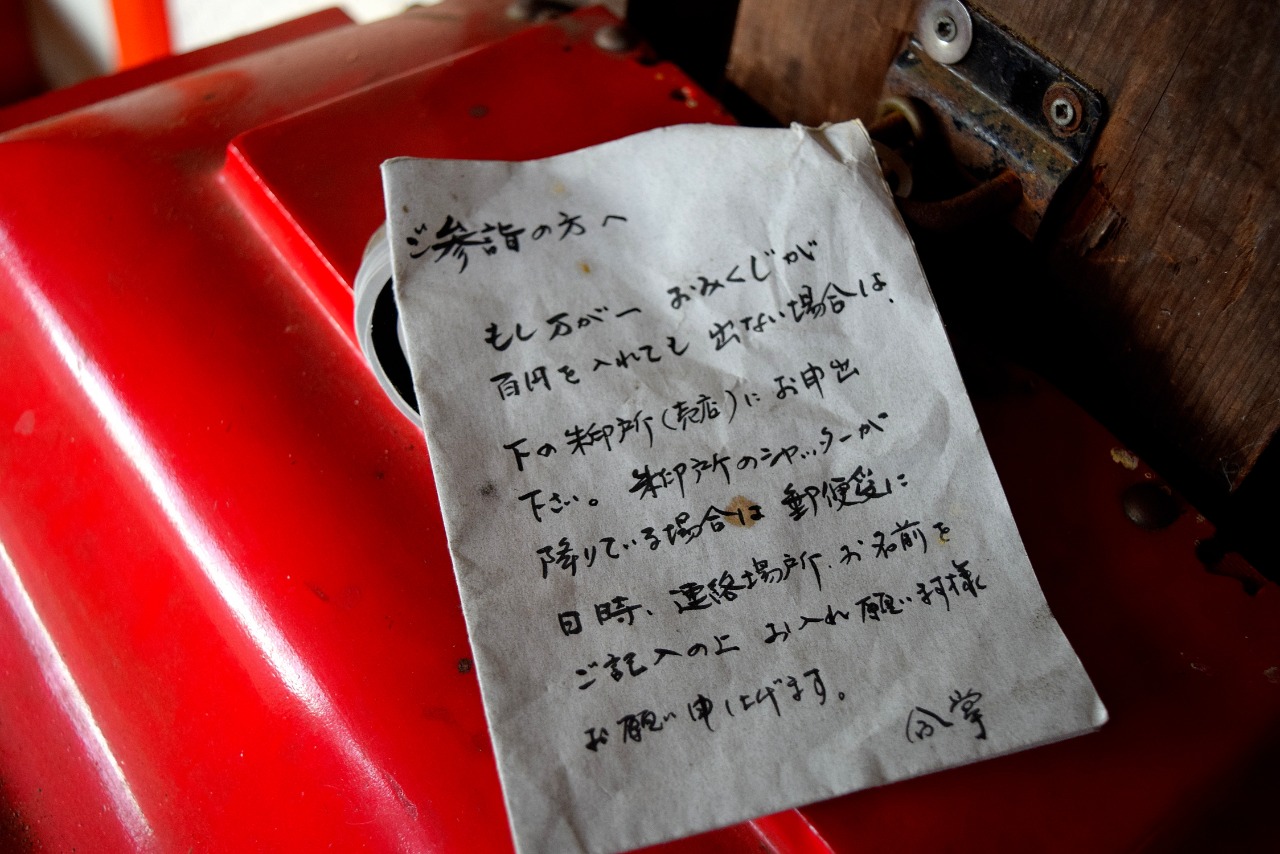 ご参詣の方へ
もし万が一 おみくじが
百円を入れても 出ない場合は、
下の朱印所(売店)にお申出
下さい。 朱印所のシャッターが
降りている場合は 郵便受に
日時、連絡場所、お名前を
ご記入の上 お入れ願います様
お願い申し上げます。
合掌